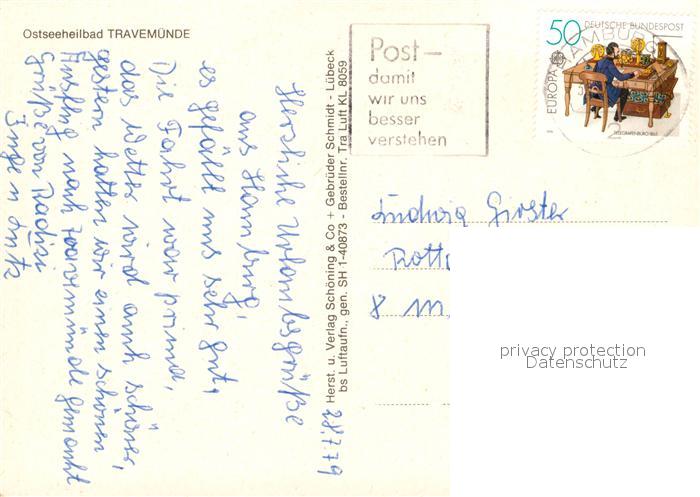 Ostseeheilbad TRAVEMÜNDE
28.7.79
Herzliche Urlaubsgrüße
aus Hamburg,
es gefällt uns sehr gut,
Die Fahrt war prima,
das Wetter wird auch schöner,
gestern hatten wir einen schönen
Ausflug nach Travemünde gemacht
Grüße von
Inge u
Herst. u. Verlag Schöning & Co + Gebrüder Schmidt - Lübeck
bs Luftaufn., gen. SH 1-40873 - Bestellnr. Tra Luft KL 8059
Post-
damit
wir uns
besser
verstehen
50 DEUTSCHE BUNDESPOST
EUROPA
TELEGRAFENBÜRO 1863
HAMBURG
Ludwig
8 M.
privacy protection
Datenschutz